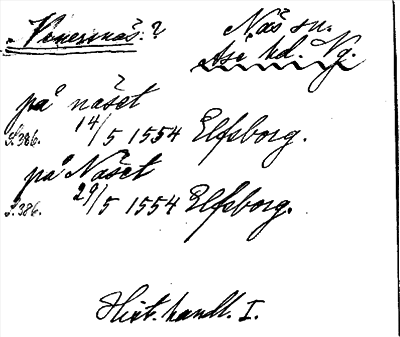 Venersnäs: ?
Näs sn.
Åse hd. Vg.
på näset
S. 386. 14/5 1554 Elfsborg.
på Näset
S. 386. 29/5 1554 Elfsborg.
Hist. handl. I.